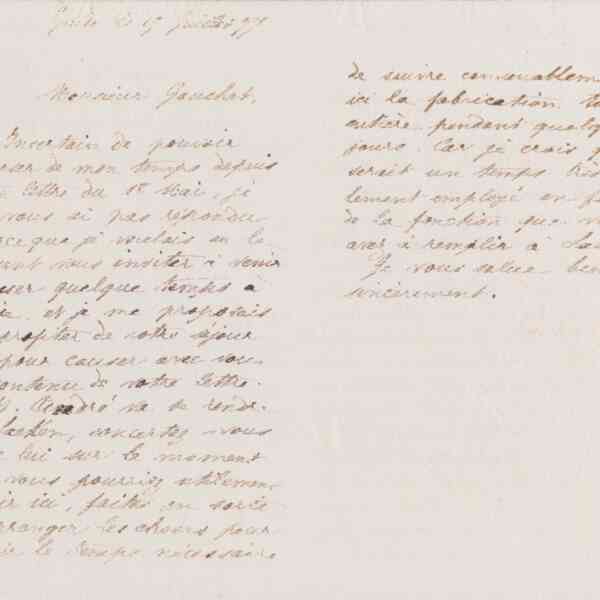 Guise le 15 Juillet 97
Monsieur Gauchet,
Incertain de pouvoir
ser de mon temps depuis
lettre du 1er Mai, je
vous ai pas répondu
rce que je voulais au
vant vous inviter à venir
ser quelque temps à
et je me proposais
profiter de votre séjour
pour causer avec vous
contenu de votre lettre.
André va se rendre
Laeken, concertez-vous
lui sur le moment
vous pourriez utilement
ir ici, faites en sorte
rranger les choses pour
le temps nécessaire
de suivre convenablem
ici la fabrication to
entière pendant quelq
jours. Car je crois q
serait un temps très
lement employé en f
de la fonction que v
avez à remplir à Lae
Je vous salue bien
sincèrement.